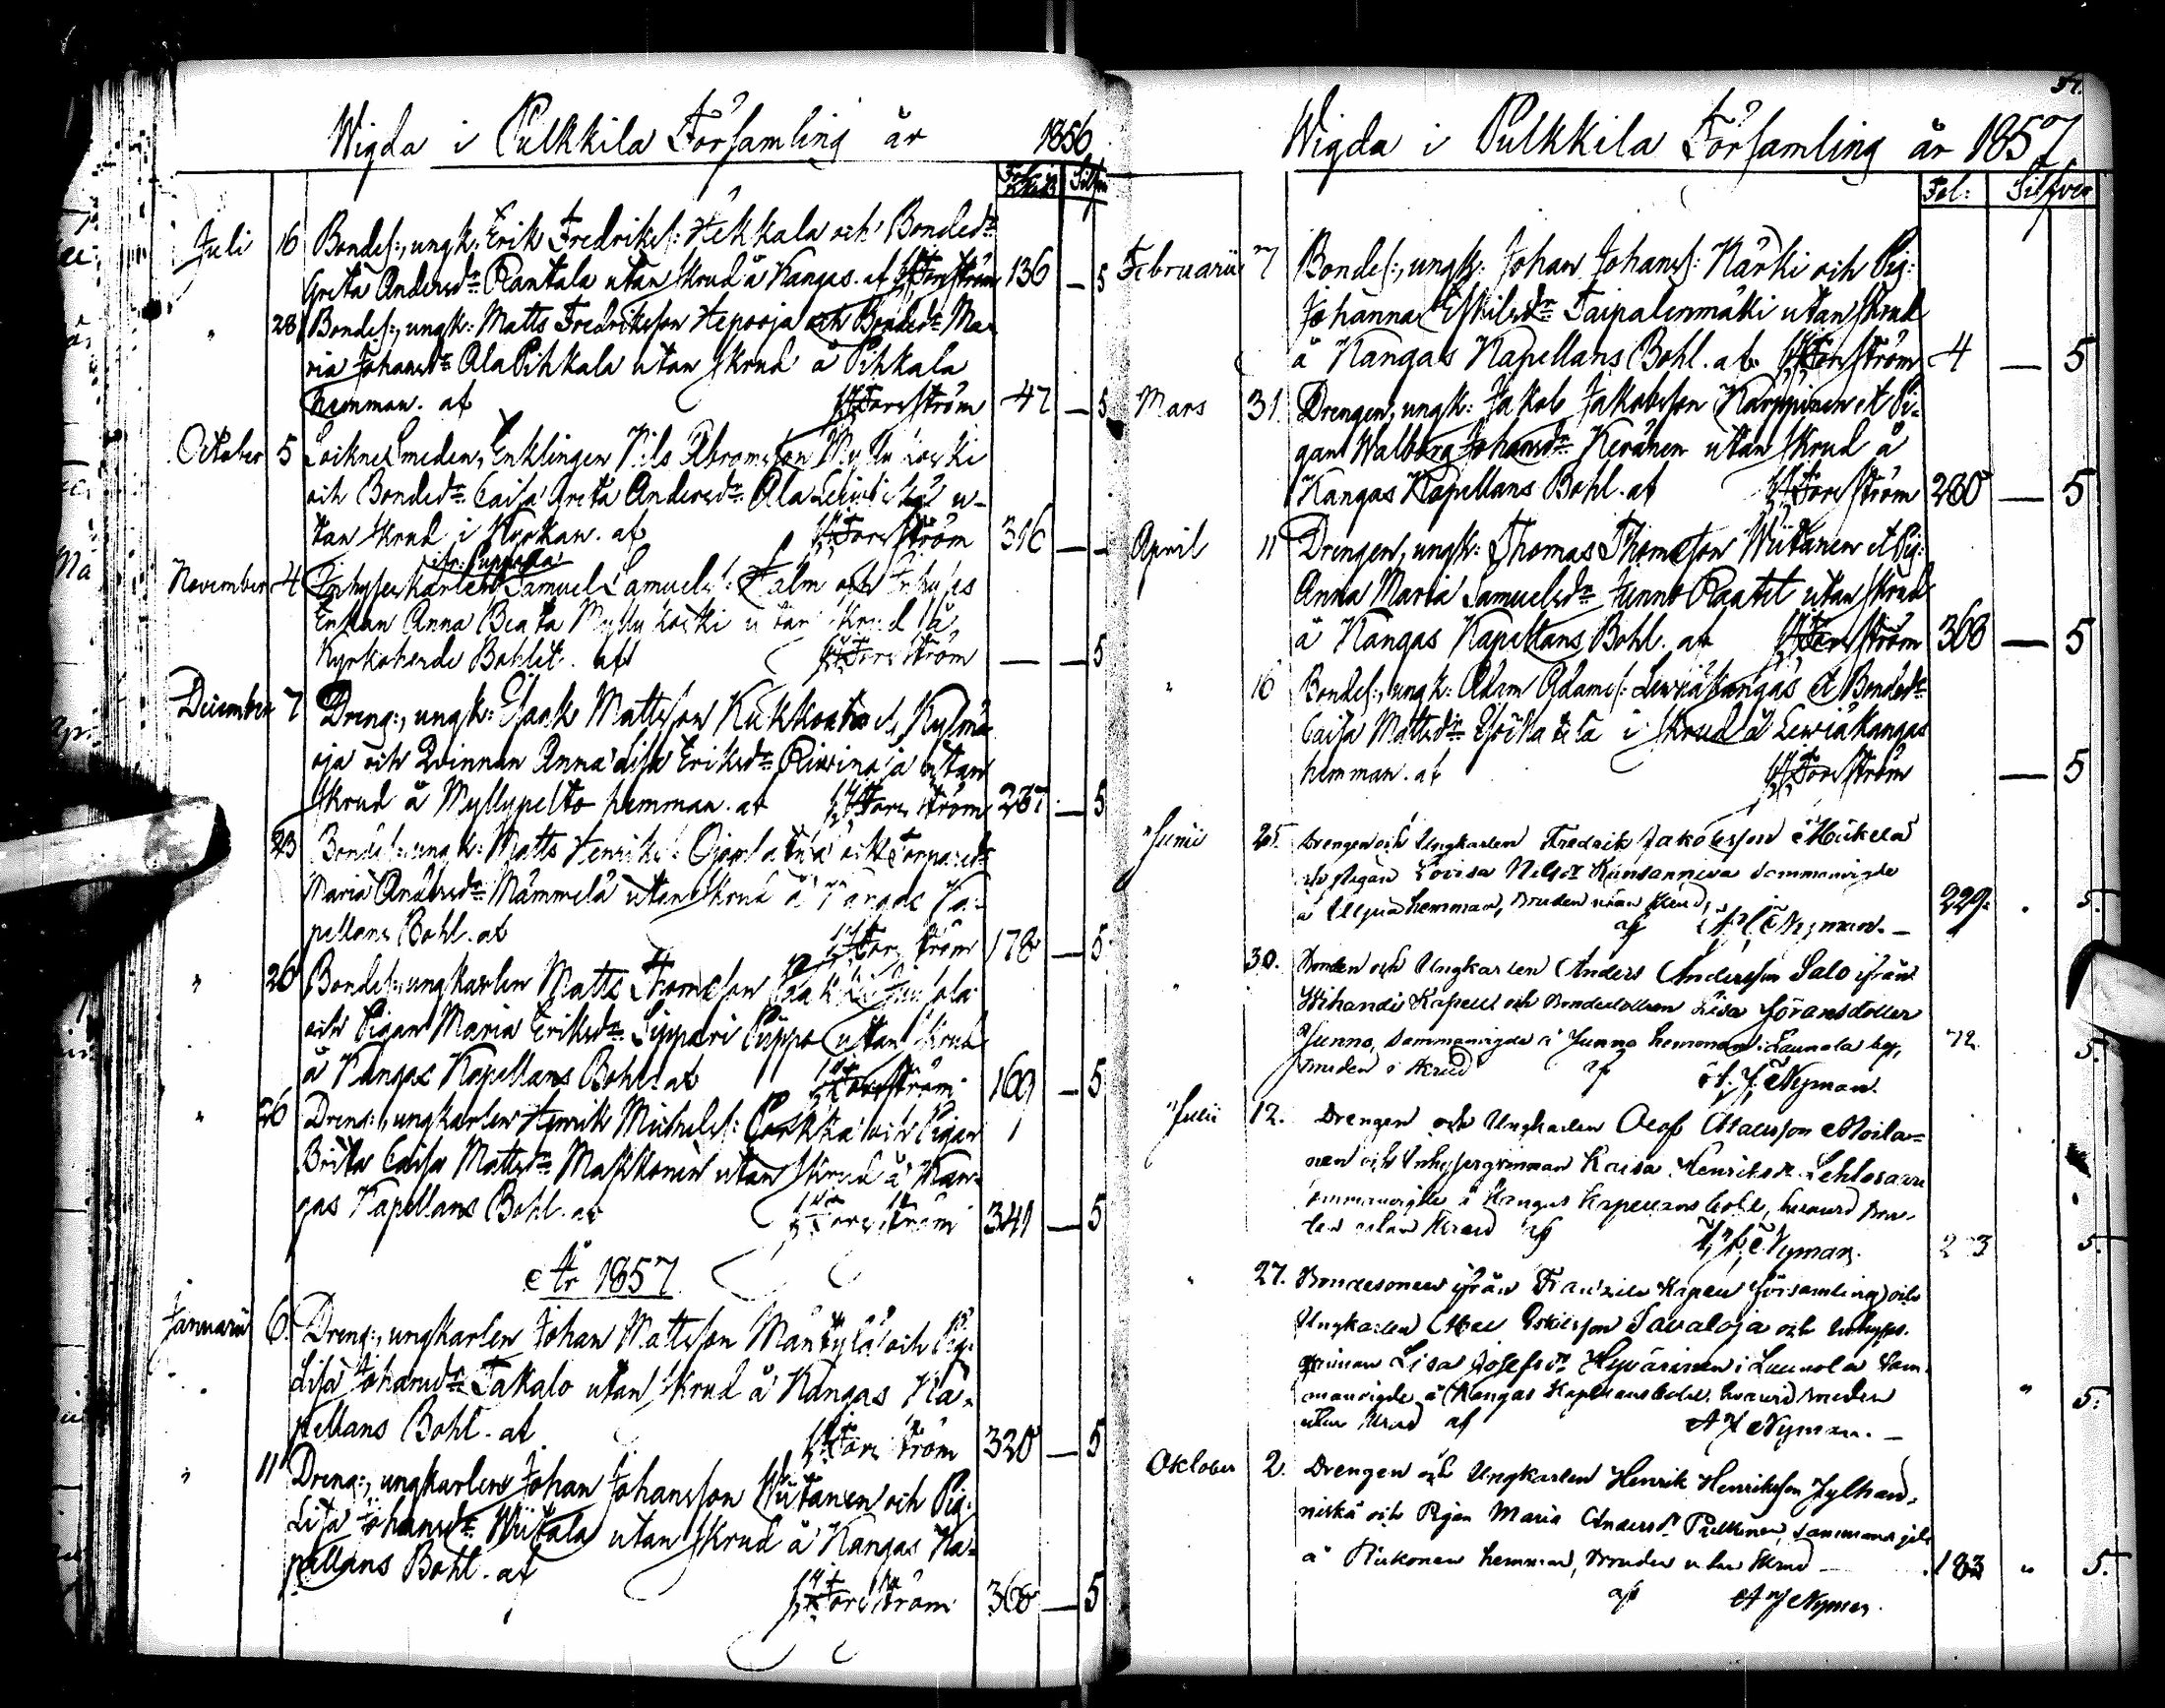 Wigda i Pulkkila Församling år 1856
Fol: Silfver
Juli 16 Bondes:, ungk: Erik Fredriks: Hekkala och Bondedr
Greta Andersdr Rantala utan skrud å Kangas. af Forsström 136 — 5
" 28 Bondes:, ungk: Matts Fredriksson Heposja och Bondedr Ma-
ria Johansdr AlaPihkala utan skrud å Pihkala
hemman. af Forsström 47 — 5
October 5 SockneSmeden, Enklingen Nils Abramsson Myllykoski
och Bondedr Caisa Greta Andersdr Ala u-
tan skrud i Kyrkan. af Forsström 316 — -
November 4 Inhyseskarlen Samuel Samuels: Falm och Inhyses
Enkan Anna Beata Myllykoski utan skrud å
Kyrkoherde Bohlet. af Forsström — — 5
December 7 Dreng:, ungk: Isaak Mattsson Kukko Kylmä-
oja och Qvinnan Anna Lisa Eriksdr Rivinoja utan
skrud å Myllypelto hemman. af Forsström 237 — 5
23 Bondes:, ungk: Matts Henriks: och Torparedr
Maria Andersdr Mämmelä utan skrud å Kangas Ka-
pellans Bohl. af Forsström 178 — 5
" 26 Bondes:, ungkarlen Matts Thomasson
och Pigan Maria Eriksdr Sippari Piippo utan skrud
å Kangas Kapellans Bohl. af Forsström 169 — 5
" 26 Dreng:, ungkarlen Henrik Michels: och Pigan
Brita Caisa Mattsdr Makkonen utan skrud å Kan-
gas Kapellans Bohl. af Forsström 341 — 5
År 1857
Januarii 6. Dreng:, ungkarlen Johan Mattsson Mäntylä och Pig:
Lisa Johansdr Takalo utan skrud å Kangas Ka-
pellans Bohl. af Forsström 320 — 5
" 11 Dreng:, ungkarlen Johan Johansson Wiitanen och Pig:
Lisa Johansdr Wiitala utan skrud å Kangas Ka-
pellans Bohl. af Forsström 368 — 5
57.
Wigda i Pulkkila Församling år 1857
Fol: Silfver
Februarii 7 Bondes:, ungk: Johan Johans: Kärki och Pig:
Johanna Eskilsdr Taipalenmäki utan skrud
å Kangas Kapellans Bohl. af Forsström 4 — 5
Mars 31. Drengen, ungk: Jakob Jakobsson Karppinen et Pi-
gan Walborg Johansdr Keränen utan skrud å
Kangas Kapellans Bohl. af Forsström 280 — 5
April 11 Drengen, ungk: Thomas Thomasson Wiitanen et Pig:
Anna Maria Samuelsdr Junno Raatit utan skrud
å Kangas Kapellans Bohl. af Forsström 368 — 5
" 16 Bondes:, ungk: Adam Adams: Lewiäkangas et Bondedr
Caisa Mattsdr i skrud å Lewiäkangas
hemman. af Forsström — 5
Junii 25. Drengen och Ungkarlen Fredrik Jakobsson Mickelä
och Pigan Lovisa Nilsdr sammanvigde
å hemman, bruden utan skrud,
af Nyman. 229. " 5.
" 30. Bonden och Ungkarlen Anders Andersson Salo ifrån
Wihandi Kapell och Bondedottren Lisa Göransdotter
Junno, sammanvigde å Junno hemman i Laurola by,
bruden i skrud af Nyman. 72. 5.
Julii 12. Drengen och Ungkarlen Olof Olafsson Moila-
nen och Inhysesqvinnan Kaisa Henriksdr Lehtosaari
sammanvigde å Kangas Kapellans bohl, hwarwid bru-
den utan skrud af Nyman. 5.
" 27. Bondesonen ifrån Frantsila Kapell församling och
Ungkarlen Eskilsson Savaloja och Inhyses-
qvinnan Lisa Josefsdr Hyvärinen i Laurola sam-
manvigde å Kangas Kapellans bohl, hwarwid bruden
utan skrud af Nyman. " 5.
Oktober 2. Drengen och Ungkarlen Henrik Henriksson Jylhän-
niskä och Pigan Maria Andersdr Pulkkinen, sammanvigde
å hemman, bruden utan skrud 183 " 5.
af Nyman.